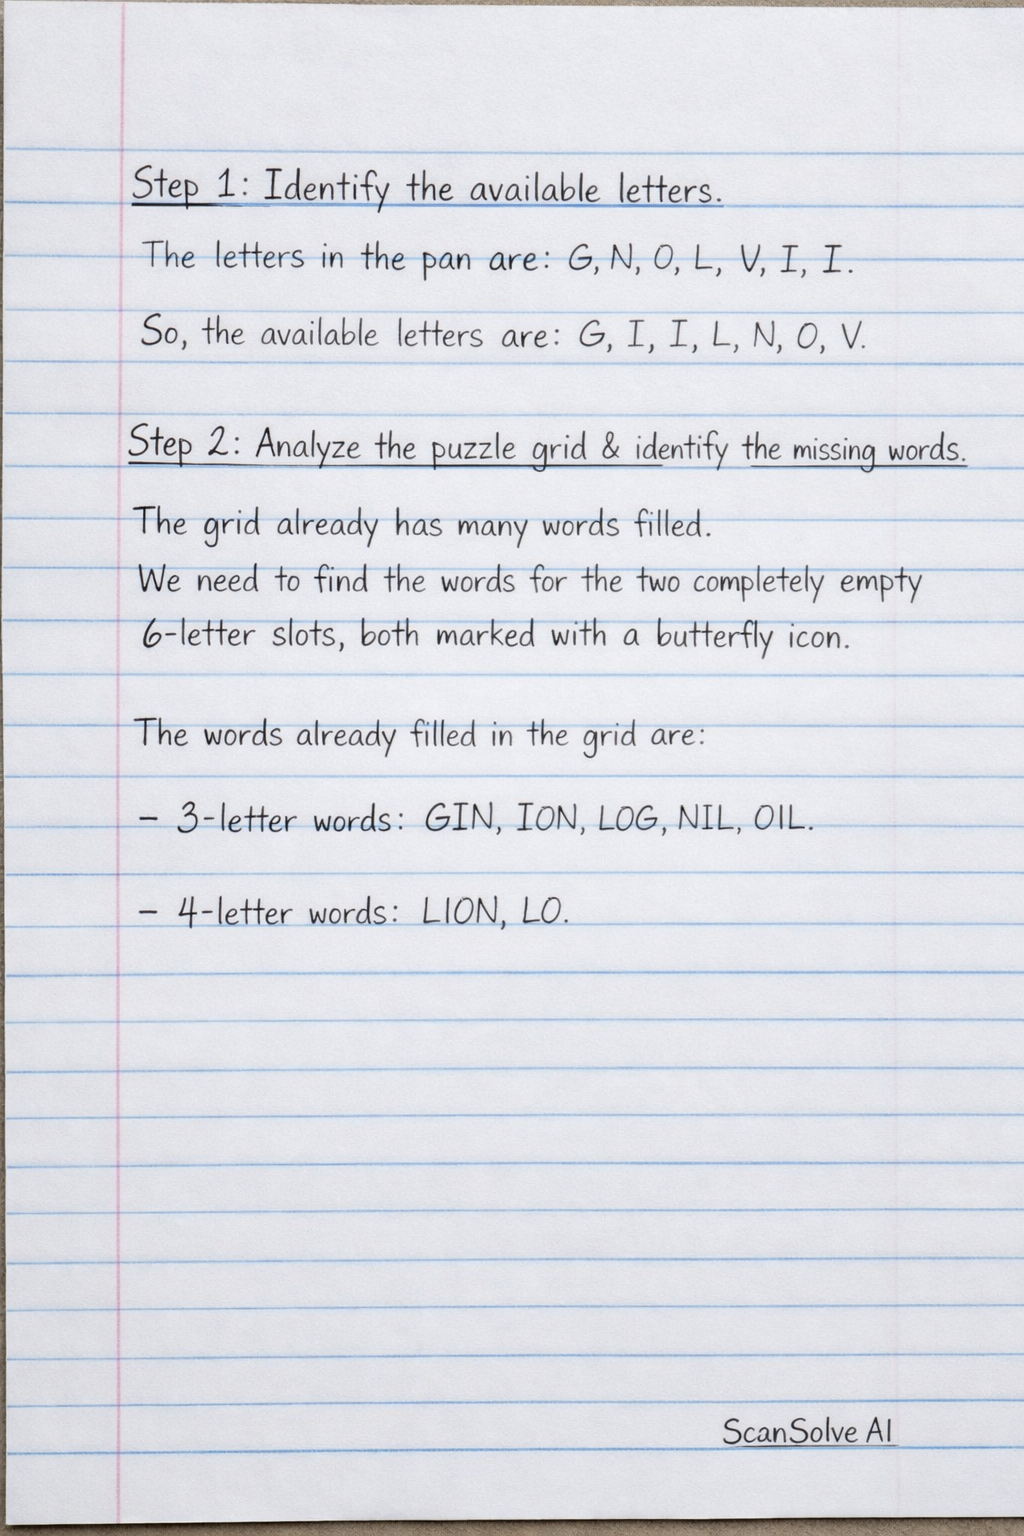 Step 1: Identify the available letters.
The letters in the pan are: G, N, O, L, V, I, I.
So, the available letters are: G, I, I, L, N, O, V.
Step 2: Analyze the puzzle grid & identify the missing words.
The grid already has many words filled.
We need to find the words for the two completely empty
6-letter slots, both marked with a butterfly icon.
The words already filled in the grid are:
– 3-letter words: GIN, ION, LOG, NIL, OIL.
– 4-letter words: LION, LO.
ScanSolve AI